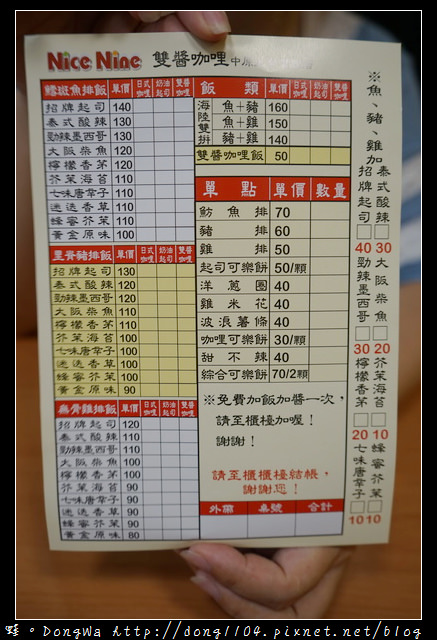 Nice Nine 雙醬咖哩 中原
鱈斑魚排飯 單價 日式咖哩 奶油起司 雙醬咖哩
招牌起司 140
泰式酸辣 130
勁辣墨西哥 130
大阪柴魚 120
檸檬香茅 120
芥茉海苔 110
七味唐辛子 110
迷迭香草 110
蜂蜜芥茉 110
黃金原味 100
里脊豬排飯 單價 日式咖哩 奶油起司 雙醬咖哩
招牌起司 130
泰式酸辣 120
勁辣墨西哥 120
大阪柴魚 110
檸檬香茅 110
芥茉海苔 100
七味唐辛子 100
迷迭香草 100
蜂蜜芥茉 100
黃金原味 90
無骨雞排飯 單價 日式咖哩 奶油起司 雙醬咖哩
招牌起司 120
泰式酸辣 110
勁辣墨西哥 110
大阪柴魚 100
檸檬香茅 100
芥茉海苔 90
七味唐辛子 90
迷迭香草 90
蜂蜜芥茉 90
黃金原味 80
飯類 單價 日式咖哩 奶油起司 雙醬咖哩
海陸雙拼
魚+豬 160
魚+雞 150
豬+雞 140
雙醬咖哩飯 50
單點 單價 數量
魴魚排 70
豬排 60
雞排 50
起司可樂餅 50/顆
洋蔥圈 40
雞米花 40
波浪薯條 40
咖哩可樂餅 30/顆
甜不辣 40
綜合可樂餅 70/2顆
※免費加飯加醬一次,
請至櫃檯加喔!
謝謝!
請至櫃檯結帳,
謝謝您!
外帶 桌號 合計
※魚、豬、雞加
招牌起司 40
泰式酸辣 30
勁辣墨西哥 30
大阪柴魚 20
檸檬香茅 20
芥茉海苔 10
七味唐辛子 10
蜂蜜芥茉 10
蛙。DongWa Http://dong1104.pixnet.net/blog